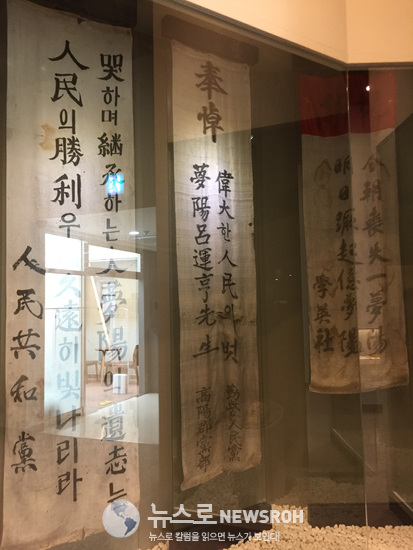 哭하며 継承하는 人 夢陽의 遺志는
人民의 勝利우 久遠히 빛나리라
人民共和黨
奉悼
偉大한 人民의 벗
夢陽呂運亨先生
勤勞人民黨
高陽郡黨部
今朝喪失一夢陽
明日蹶起億夢陽
學英社
뉴스로 NEWSROH
뉴스로 칼럼을 읽으면 뉴스가 보인다!